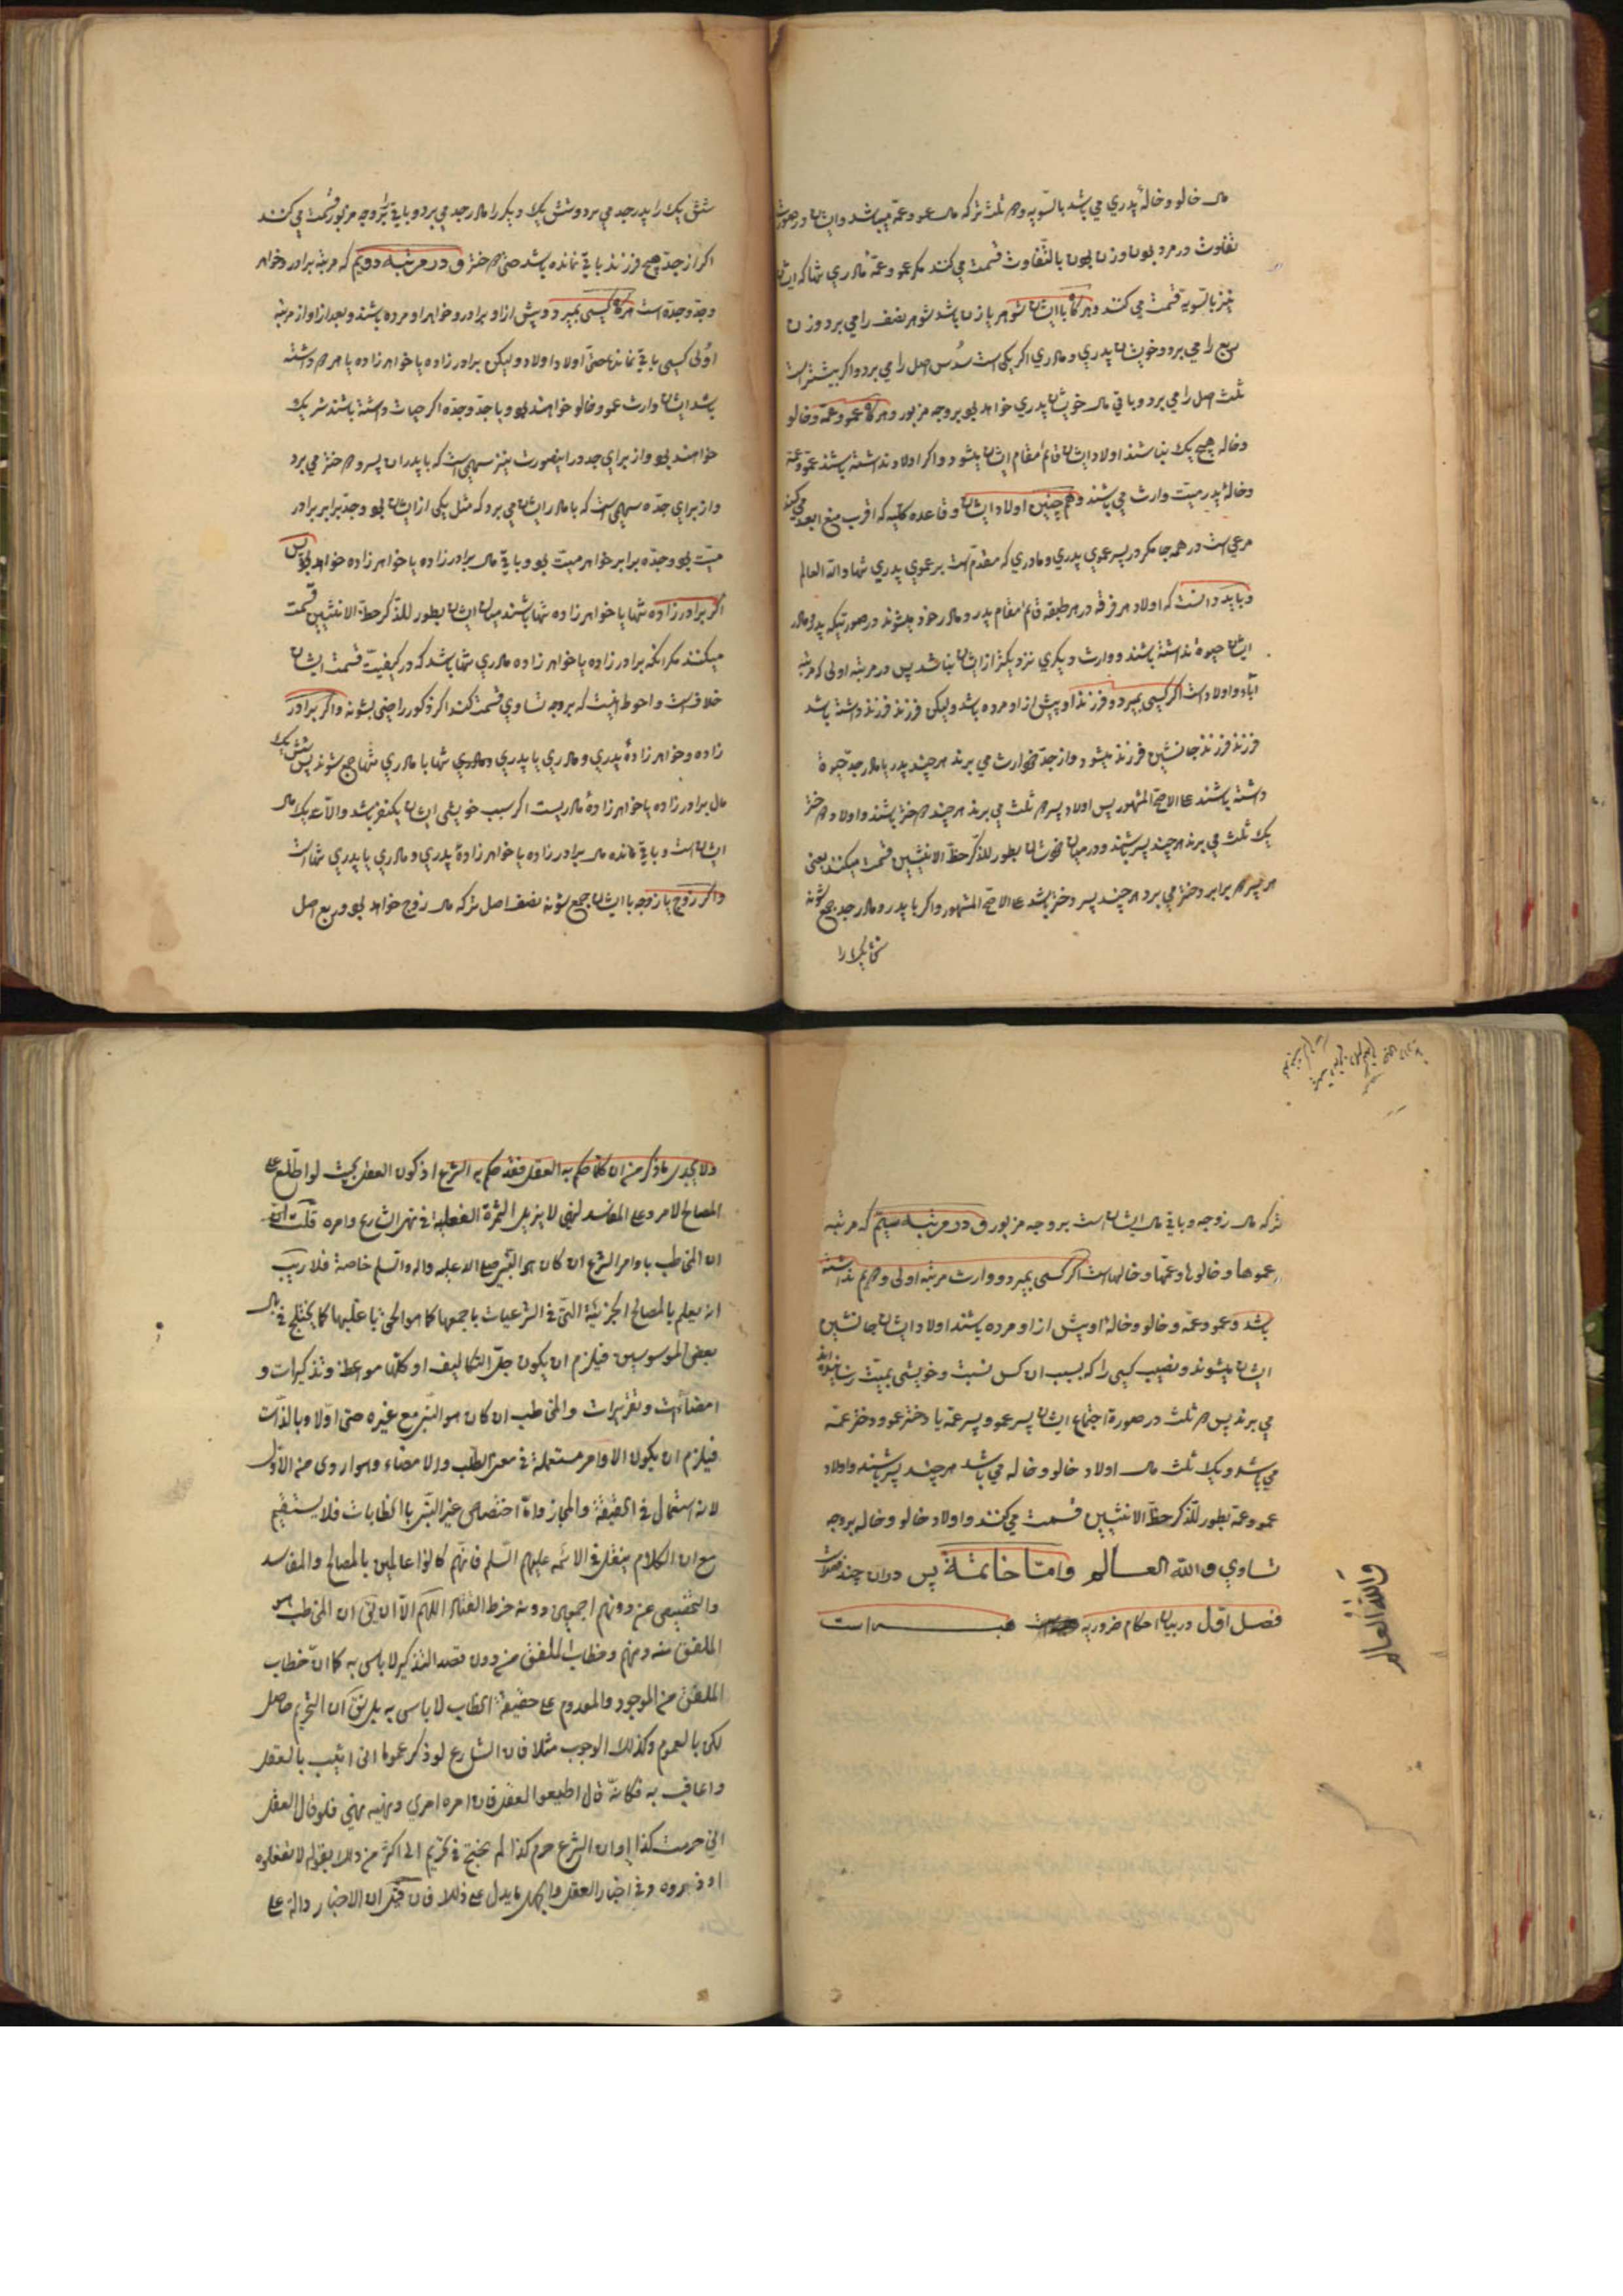 مال خالو و خالهٔ پدري مي باشد بالسّويه و دو ثلث تركه مال عمو و عمّه ميباشد و ايشان در صورت
تفاوت در مرد بودن و زن بودن بالتّفاوت قسمت مي كنند مكر عمو و عمّهٔ مادري تنها كه ايشان
نيز بالسّويه قسمت مي كنند و هركاه با ايشان شوهر يا زن باشد شوهر نصف را مي برد و زن
ربع را مي برد و خويشان پدري و مادري اكر يكي است سُدس اصل را مي برد و اكر بيشتر است
ثلث اصل را مي برد و باقي مال خويشان پدري خواهد بود بر وجه مزبور و هركاه عمو و عمّه و خالو
و خاله هيچ يك نباشند اولاد ايشان قائم مقام ايشان ميشود و اكر اولاد نداشته باشند عمّو و عمّهٔ
و خالهٔ پدر ميّت وارث مي باشند و هم چنين اولاد ايشان و قاعده كليّه كه اقرب منع ابعد مي كند
مرعي است در همه جا مكر در پسر عموي پدري و مادري كه مقدّم است بر عموي پدري تنها والله العالم
و بايد دانست كه اولاد هر فرقه در هر طبقه قائم مقام پدر و مادر خود ميشوند در صورتيكه پدر و مادر
ايشان حيوة نداشته باشند و وارث ديكري نزديكتر از ايشان نباشد پس در مرتبه اولى كه مرتبه
آباء و اولاد است اكر كسي بميرد و فرزند او پيش از او مرده باشد وليكن فرزند فرزند داشته باشد
فرزند فرزند جانشين فرزند ميشود و از جدّ خود ارث مي برند هر چند پدر يا مادر جدّ حيوة
داشته باشند على الاصحّ المشهور پس اولاد پسر دو ثلث مي برند هر چند دختر باشند و اولاد دختر
يك ثلث مي برند هر چند پسر باشند و در ميان خودشان بطور للذّكر حظّ الانثيين قسمت ميكنند يعني
هر پسر دو برابر دختر مي برد هر چند پسر دختر باشد على الاصحّ المشهور و اكر با پدر و مادر جد جمع شوند
شش يك را
شش يك را پدر جد مي برد و شش يك ديكر را مادر جد مي برد و باقي بر وجه مزبور قسمت مي كنند
اكر از جدّ هيچ فرزند باقي نمانده باشد حتى دختر و در مرتبه دويم كه مرتبه برادر و خواهر
و جدّ و جدّه است هركاه كسي بميرد و پيش از او برادر و خواهر او مرده باشند و بعد از او از مرتبه
اولى كسي باقي نماند حتّى اولاد اولاد وليكن برادر زاده يا خواهر زاده يا هر دو داشته
باشد ايشان وارث عمو و خالو خواهند بود و با جدّ و جدّه اكر حيات داشته باشند شريك
خواهند بود و از براي جد در اينصورت نيز سهمي است كه با پدر ان پسر و دختر مي برد
و از براي جدّه سهمي است كه با مادر ايشان مي برد كه مثل يكي از ايشان بود و جدّ برابر برادر
ميّت بود و جدّه برابر خواهر ميّت بود و باقي مال برادر زاده يا خواهر زاده خواهد بود پس
اكر برادر زاده تنها يا خواهر زاده تنها باشند ميان ايشان بطور للذّكر حظّ الانثيين قسمت
ميكنند مكر انكه برادر زاده يا خواهر زاده مادري تنها باشد كه در كيفيّت قسمت ايشان
خلاف است و احوط اينست كه بر وجه تساوي قسمت كنند اكر ذكور راضي بشوند و اكر برادر
زاده و خواهر زادهٔ پدري و مادري يا پدري تنها با مادري تنها جمع شوند پس شش يك
مال برادر زاده يا خواهر زادهٔ مادريست اكر سبب خويشي ايشان يكنفر باشد و الّا ثلث مال
ايشان است و باقي مانده مال برادر زاده يا خواهر زادهٔ پدري و مادري يا پدري تنها است
و اكر زوج يا زوجه با ايشان جمع شوند نصف اصل تركه مال زوج خواهد بود و ربع اصل
تركه مال زوجه و باقي مال ايشان است بر وجه مزبور و در مرتبه سيّم كه مرتبه
عموها و خالوها و عمّها و خالهاست اكر كسي بميرد و وارث مرتبه اولى و دويم نداشته
باشد و عمو و عمّه و خالو و خالهٔ او پيش از او مرده باشند اولاد ايشان جانشين
ايشان ميشوند و نصيب كسي را كه بسبب ان كس نسبت و خويشي بميّت رسانيده اند
مي برند پس دو ثلث در صورة اجتماع ايشان پسر عمو و پسر عمّه يا دختر عمو و دختر عمّه
مي باشد و يك ثلث مال اولاد خالو و خاله مي باشد هر چند پسر باشند و اولاد
عمو و عمّه بطور للذّكر حظّ الانثيين قسمت مي كنند و اولاد خالو و خاله بر وجه
تساوي والله العالم وامّا خاتمة پس در ان چند فصل است
فصل اوّل در بيان احكام ضروريه است
والله العالم
ولا يجدي ما ذكر من ان كلما حكم به العقل فقد حكم به الشرع اذ كون العقل بحيث لو اطّلع على
المصالح لامر وعلى المفاسد لنهى لا يزيل الثمرة الفعلية في نهى الشارع وامره قلت
ان المخاطب باوامر الشرع ان كان هو النبي صلى الله عليه واله وسلم خاصة فلا ريب
انه يعلم بالمصالح الجزئية التي في الشرعيات باجمعها كما هو الحق بل اغلبها كما يختلج في بال
بعض الموسوسين فيلزم ان يكون جلّ التكاليف او كلّها مواعظ وتذكيرات و
امضاآت وتقريرات والمخاطب ان كان هو النبي مع غيره حتى اوّلا وبالذات
فيلزم ان يكون الاوامر مستعملة في معنى الطلب والامضاء وهو اردى من الاوّل
لانه استعمال في الحقيقة والمجاز وامّا اختصاص غير النبي بالخطابات فلا يستقيم
مع ان الكلام ينقل في الائمه عليهم السّلم فانهم كانوا عالمين بالمصالح والمفاسد
والتخصيص بمن دونهم اجمعين دونه خرط القتاد اللّهم الّا ان يق ان المخاطب هو
الملفق منه ومنهم وخطاب الملفق من دون قصد التذكير لا باس به كما ان خطاب
الملفق من الموجود والمعدوم على حقيقة الخطاب لا باس به بل يق ان التحريم حاصل
لكن بالعموم وكذلك الوجوب مثلا فان الشارع لو ذكر عموما اني اثيب بالعقل
واعاقب به فكانّه قال اطيعوا العقل فان امره امري ونهيه نهيي فلو قال العقل
اني حرمت كذا او ان الشرع حرم كذا لم يحتج في تحريم الى اكثر من ذلك بقوله لا تفعلوه
او ذروه وفي اخبار العقل والجهل ما يدل على ذلك فان قيل ان الاخبار دالة على